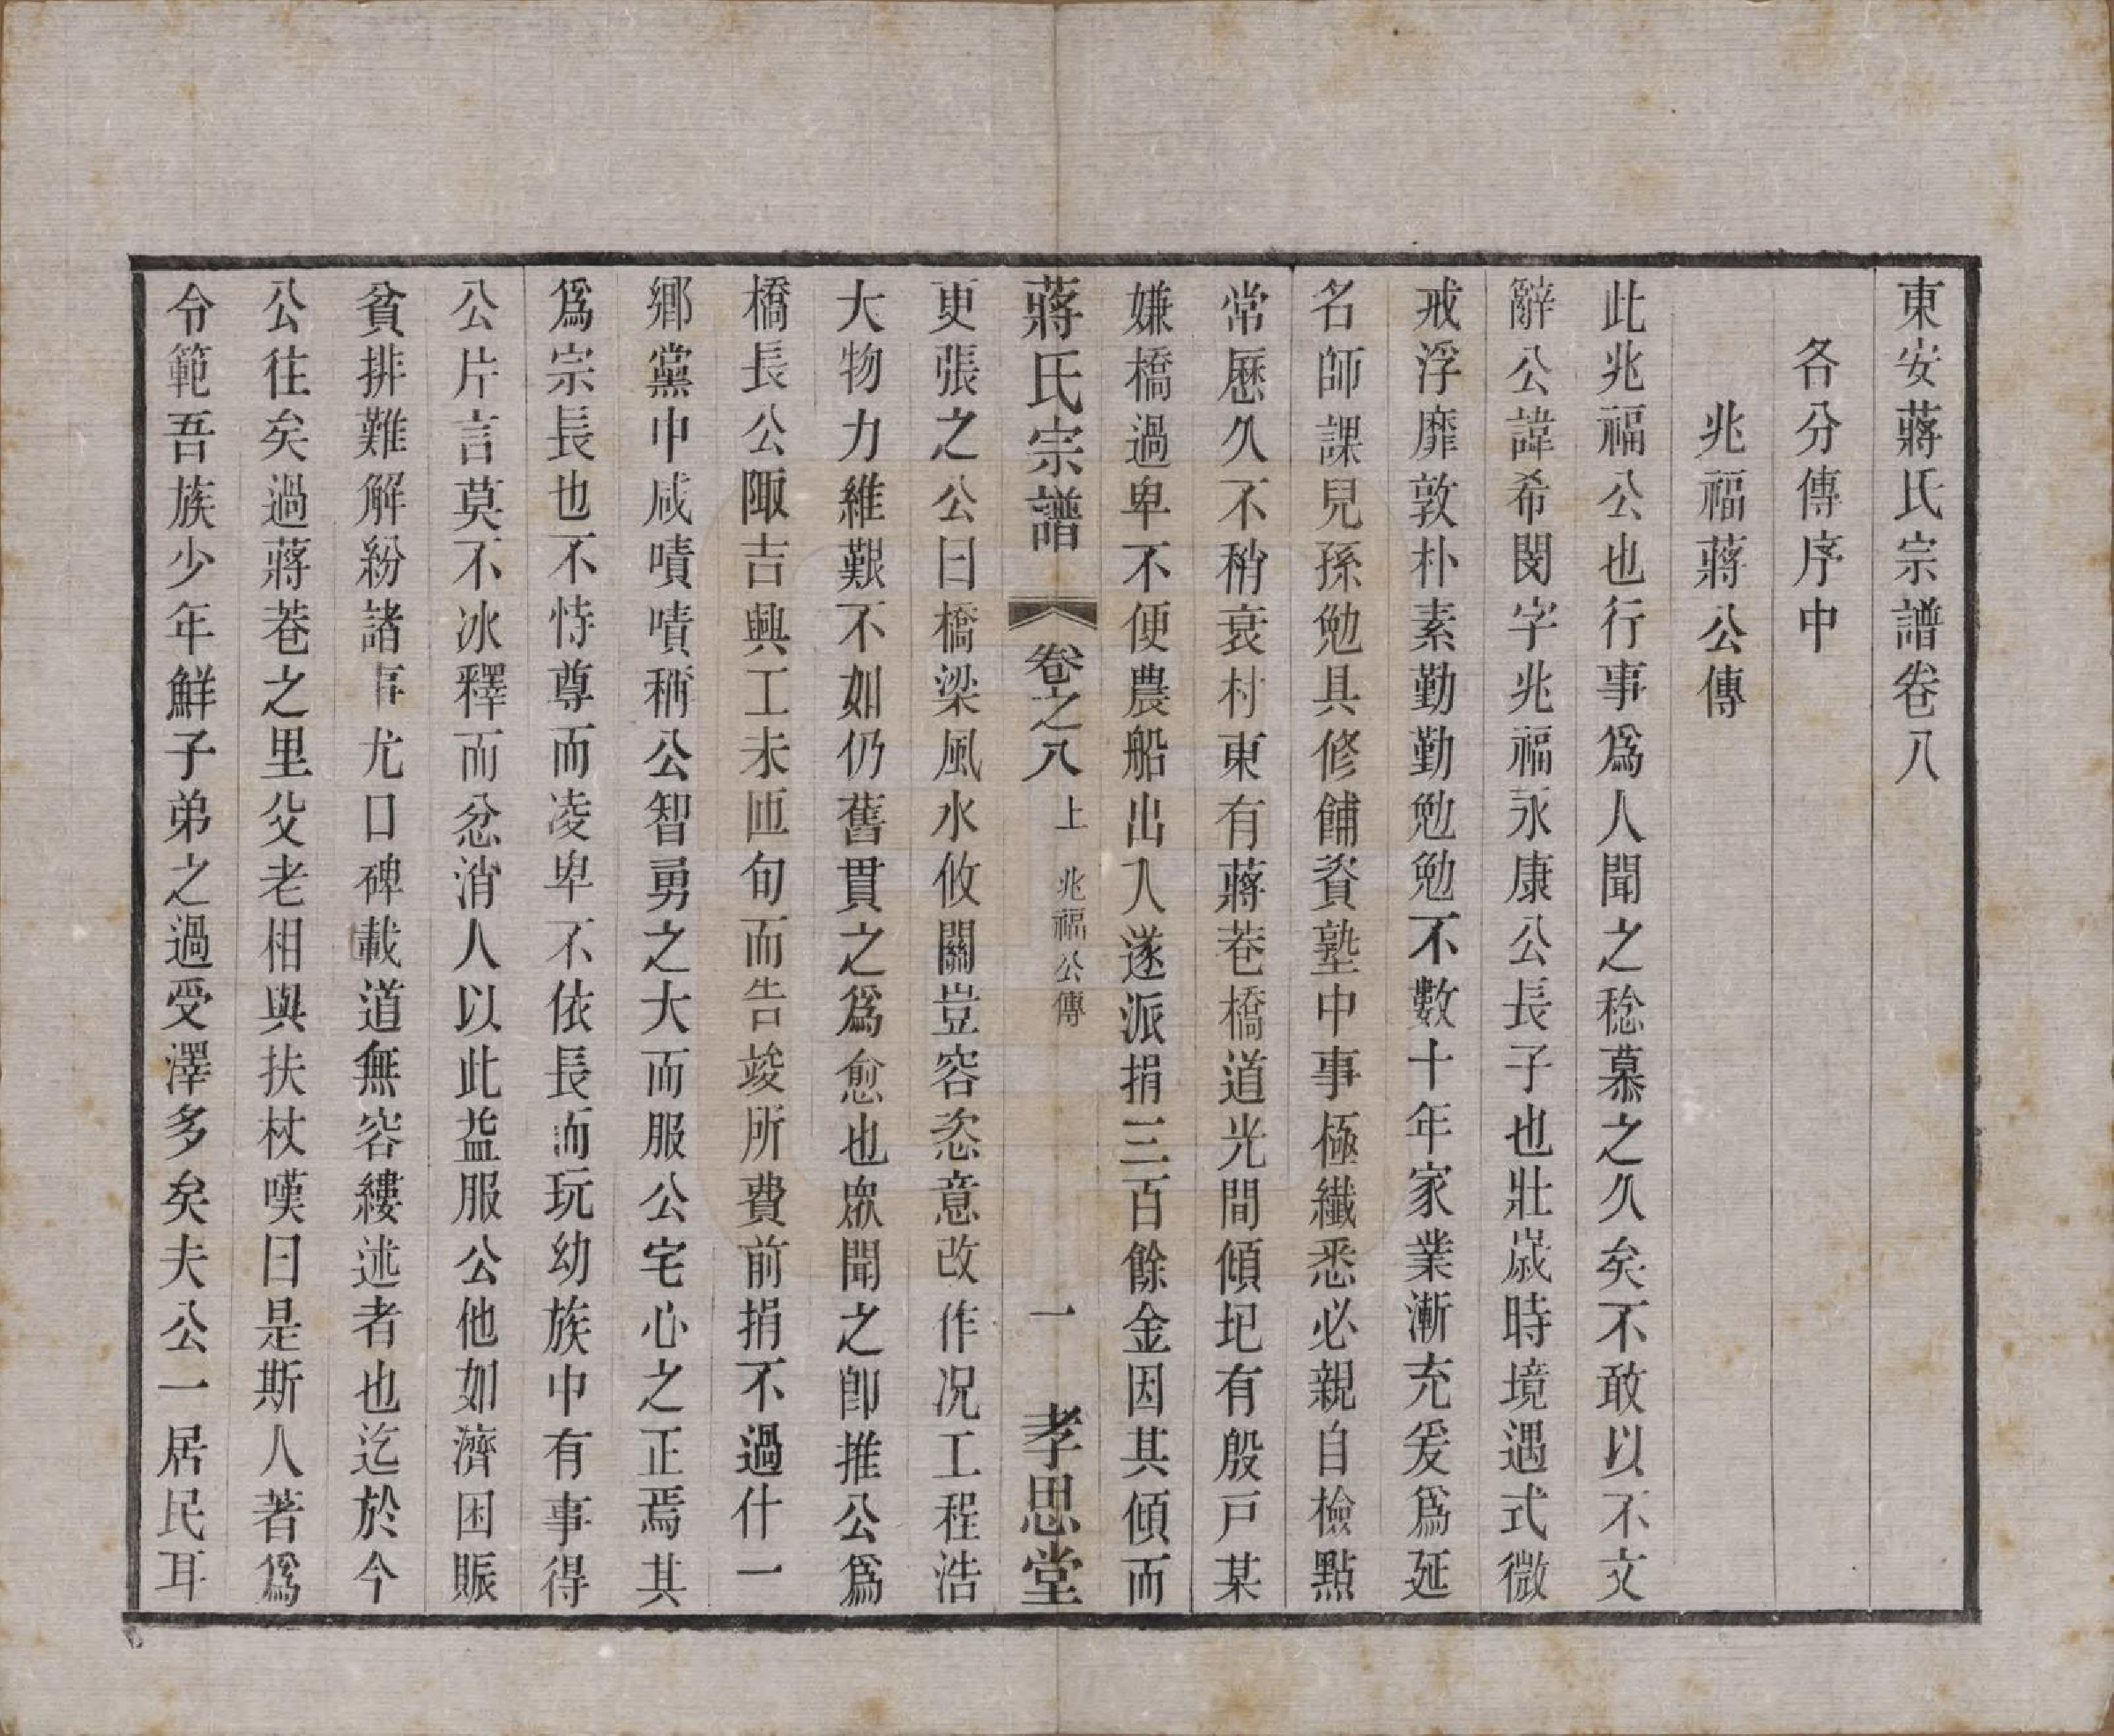 東安蔣氏宗譜卷八
各分傳序中
兆福蔣公傳
此兆福公也行事爲人聞之稔慕之久矣不敢以不文
辭公諱希閔字兆福永康公長子也壯歲時境遇式微
戒浮靡敦朴素勤勤勉勉不數十年家業漸充爰爲延
名師課兒孫勉具修餔資塾中事極纖悉必親自檢點
常厯久不稍衰村東有蔣巷橋道光間傾圯有殷戶某
嫌橋過卑不便農船出入遂派捐三百餘金因其傾而
蔣氏宗譜 卷之八 上 兆福公傳 一 孝思堂
更張之公曰橋梁風水攸關豈容恣意改作况工程浩
大物力維艱不如仍舊貫之爲愈也眾聞之卽推公爲
橋長公陬吉興工未匝旬而告竣所費前捐不過什一
鄉黨中咸嘖嘖稱公智勇之大而服公宅心之正焉其
爲宗長也不恃尊而凌卑不依長而玩幼族中有事得
公片言莫不冰釋而忿消人以此益服公他如濟困賑
貧排難解紛諸事尤口碑載道無容縷述者也迄於今
公往矣過蔣巷之里父老相與扶杖嘆曰是斯人著爲
令範吾族少年鮮子弟之過受澤多矣夫公一居民耳